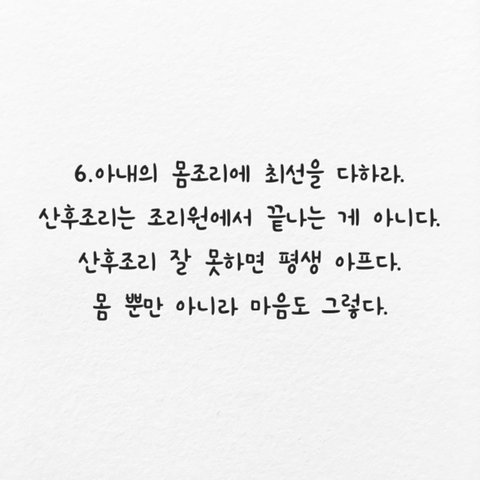 6.아내의 몸조리에 최선을 다하라.
산후조리는 조리원에서 끝나는 게 아니다.
산후조리 잘 못하면 평생 아프다.
몸 뿐만 아니라 마음도 그렇다.